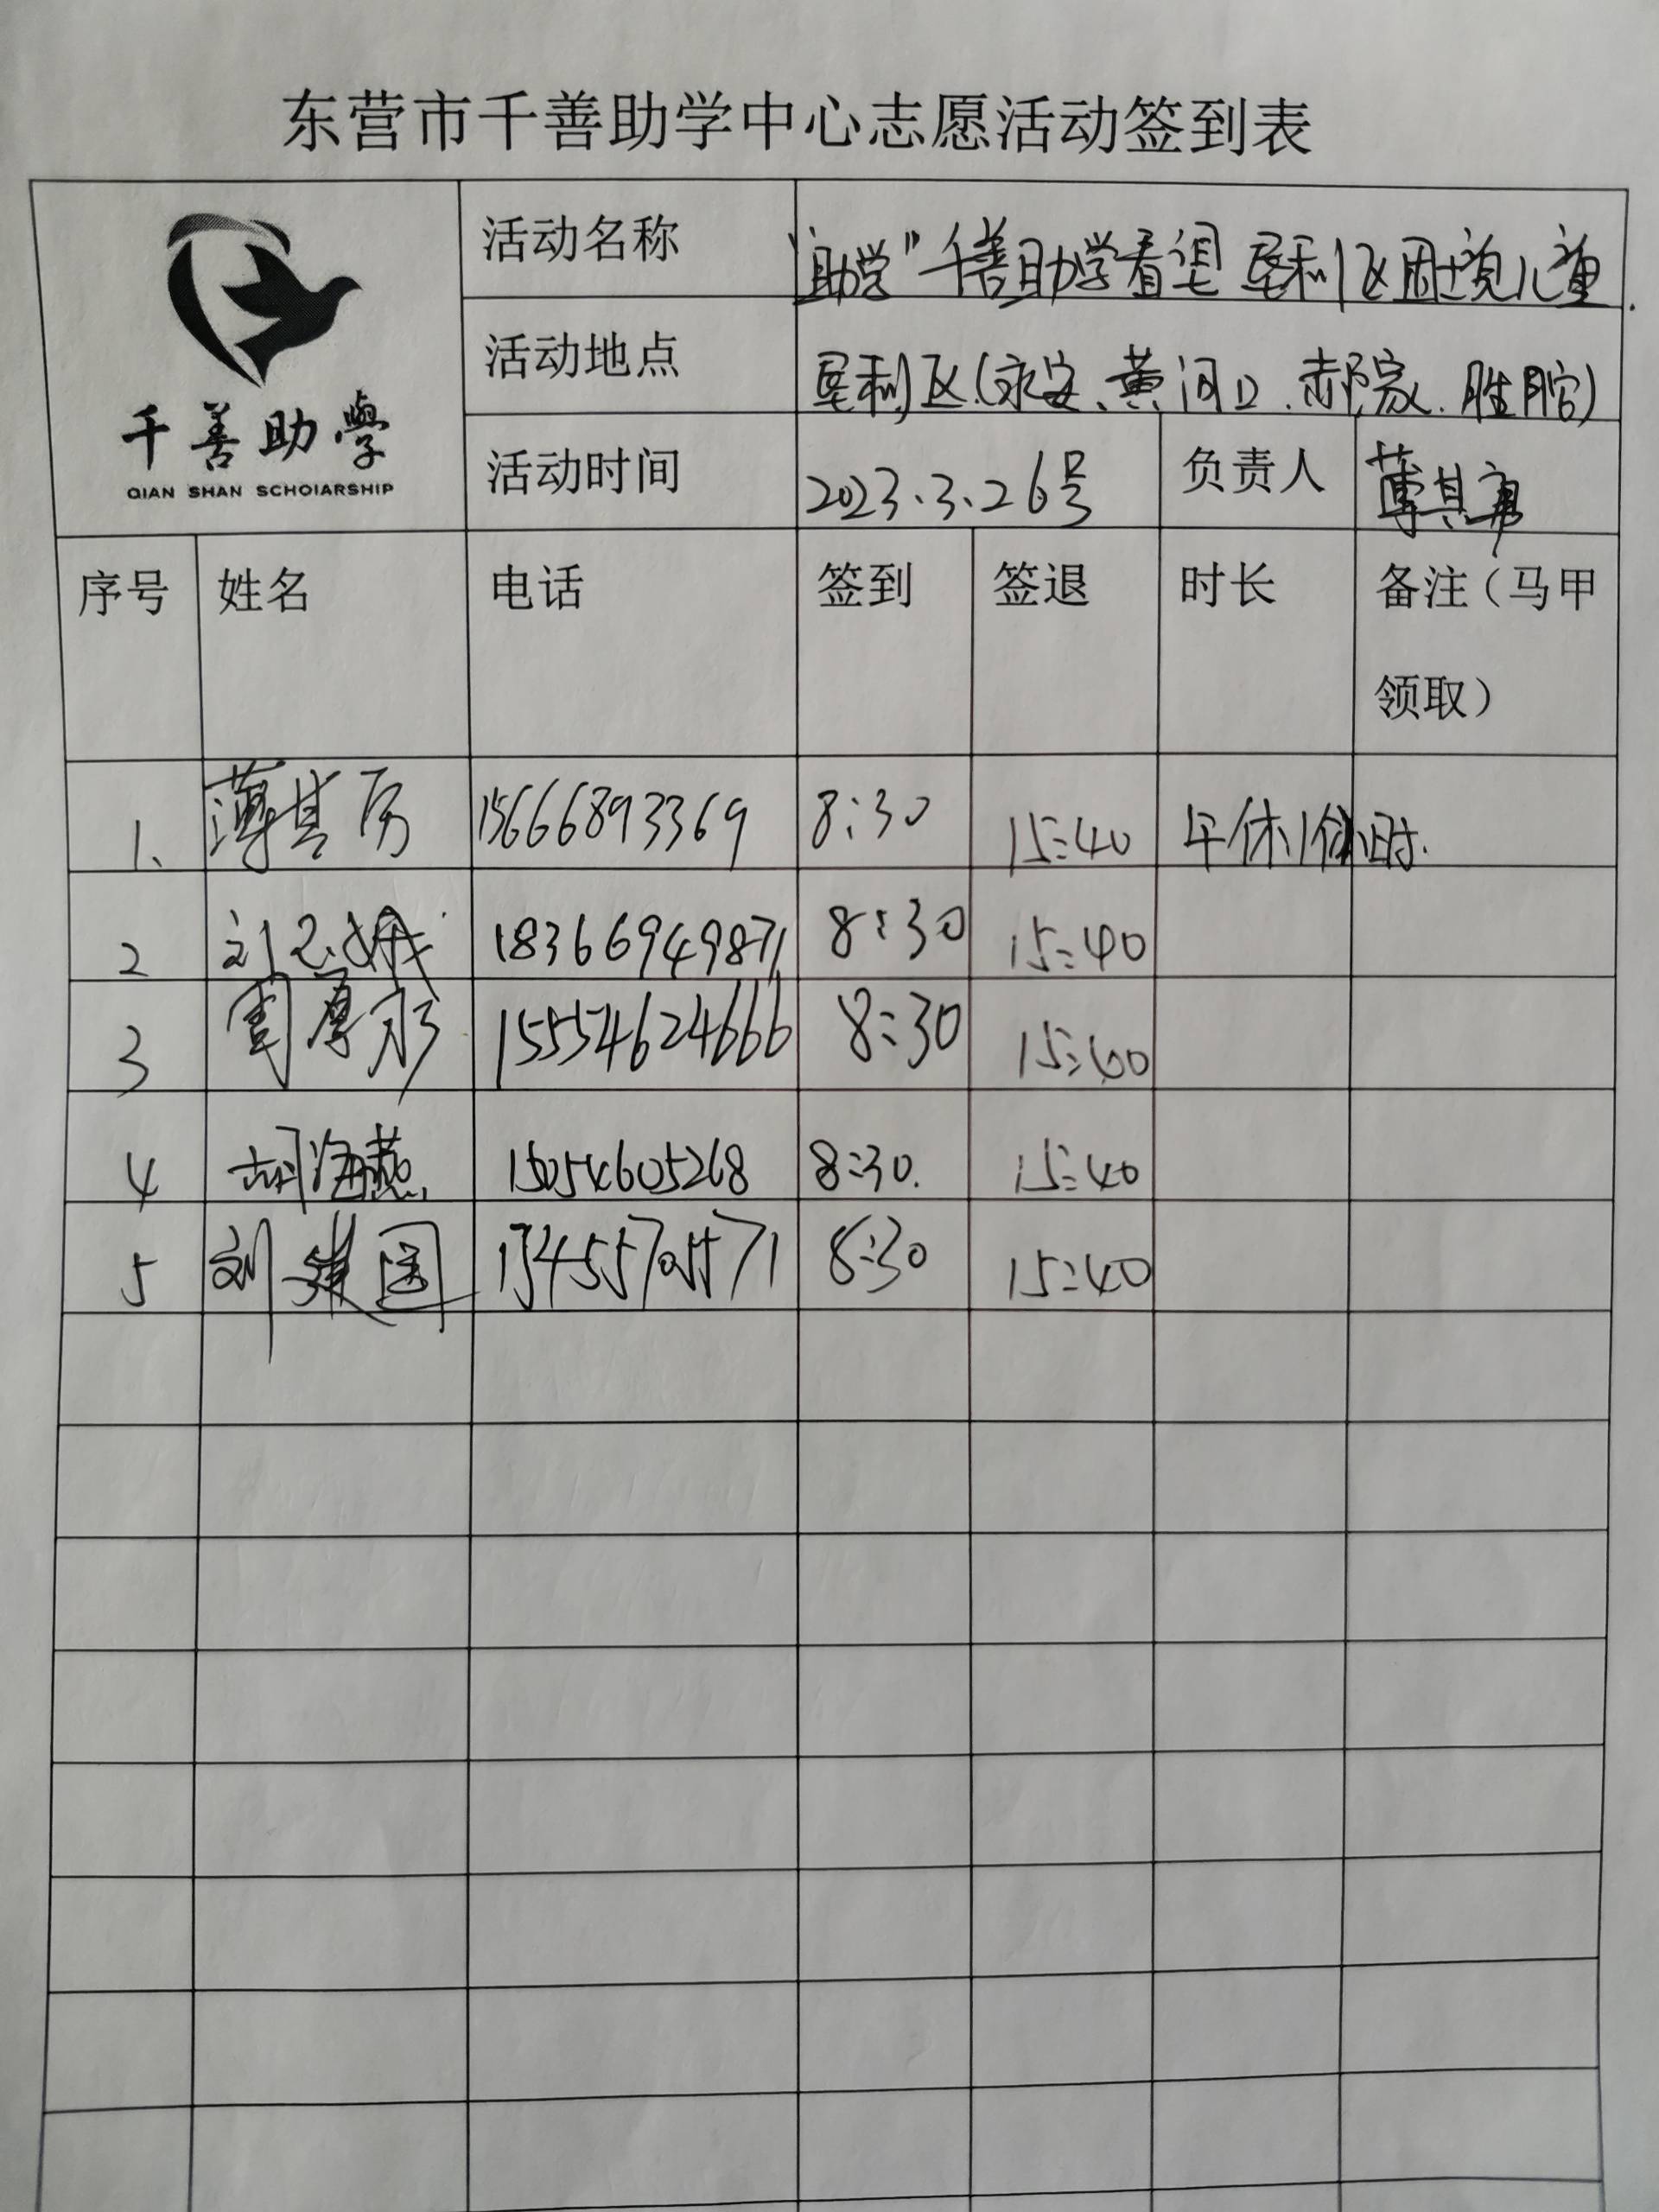 东营市千善助学中心志愿活动签到表
千善助學
QIAN SHAN SCHOlARSHIP
活动名称 "助学"千善助学看望垦利区困境儿童.
活动地点 垦利区(永安、黄河口.郝家.胜坨)
活动时间 2023.3.26号 负责人 薄其
序号 姓名 电话 签到 签退 时长 备注（马甲
领取）
1、 薄其 15666893369 8:30 15:40 午休1个小时.
2 刘 18366949871 8:30 15:40
3 15554624666 8:30 15:40
4 胡海燕 15054605268 8:30. 15:40
5 刘建国 8:30 15:40